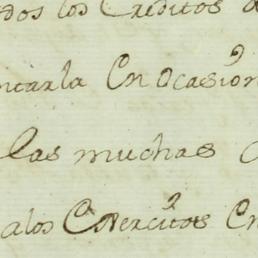 dos los Creditos
ntarla En ocasion
las muchas
alos Exercitos En